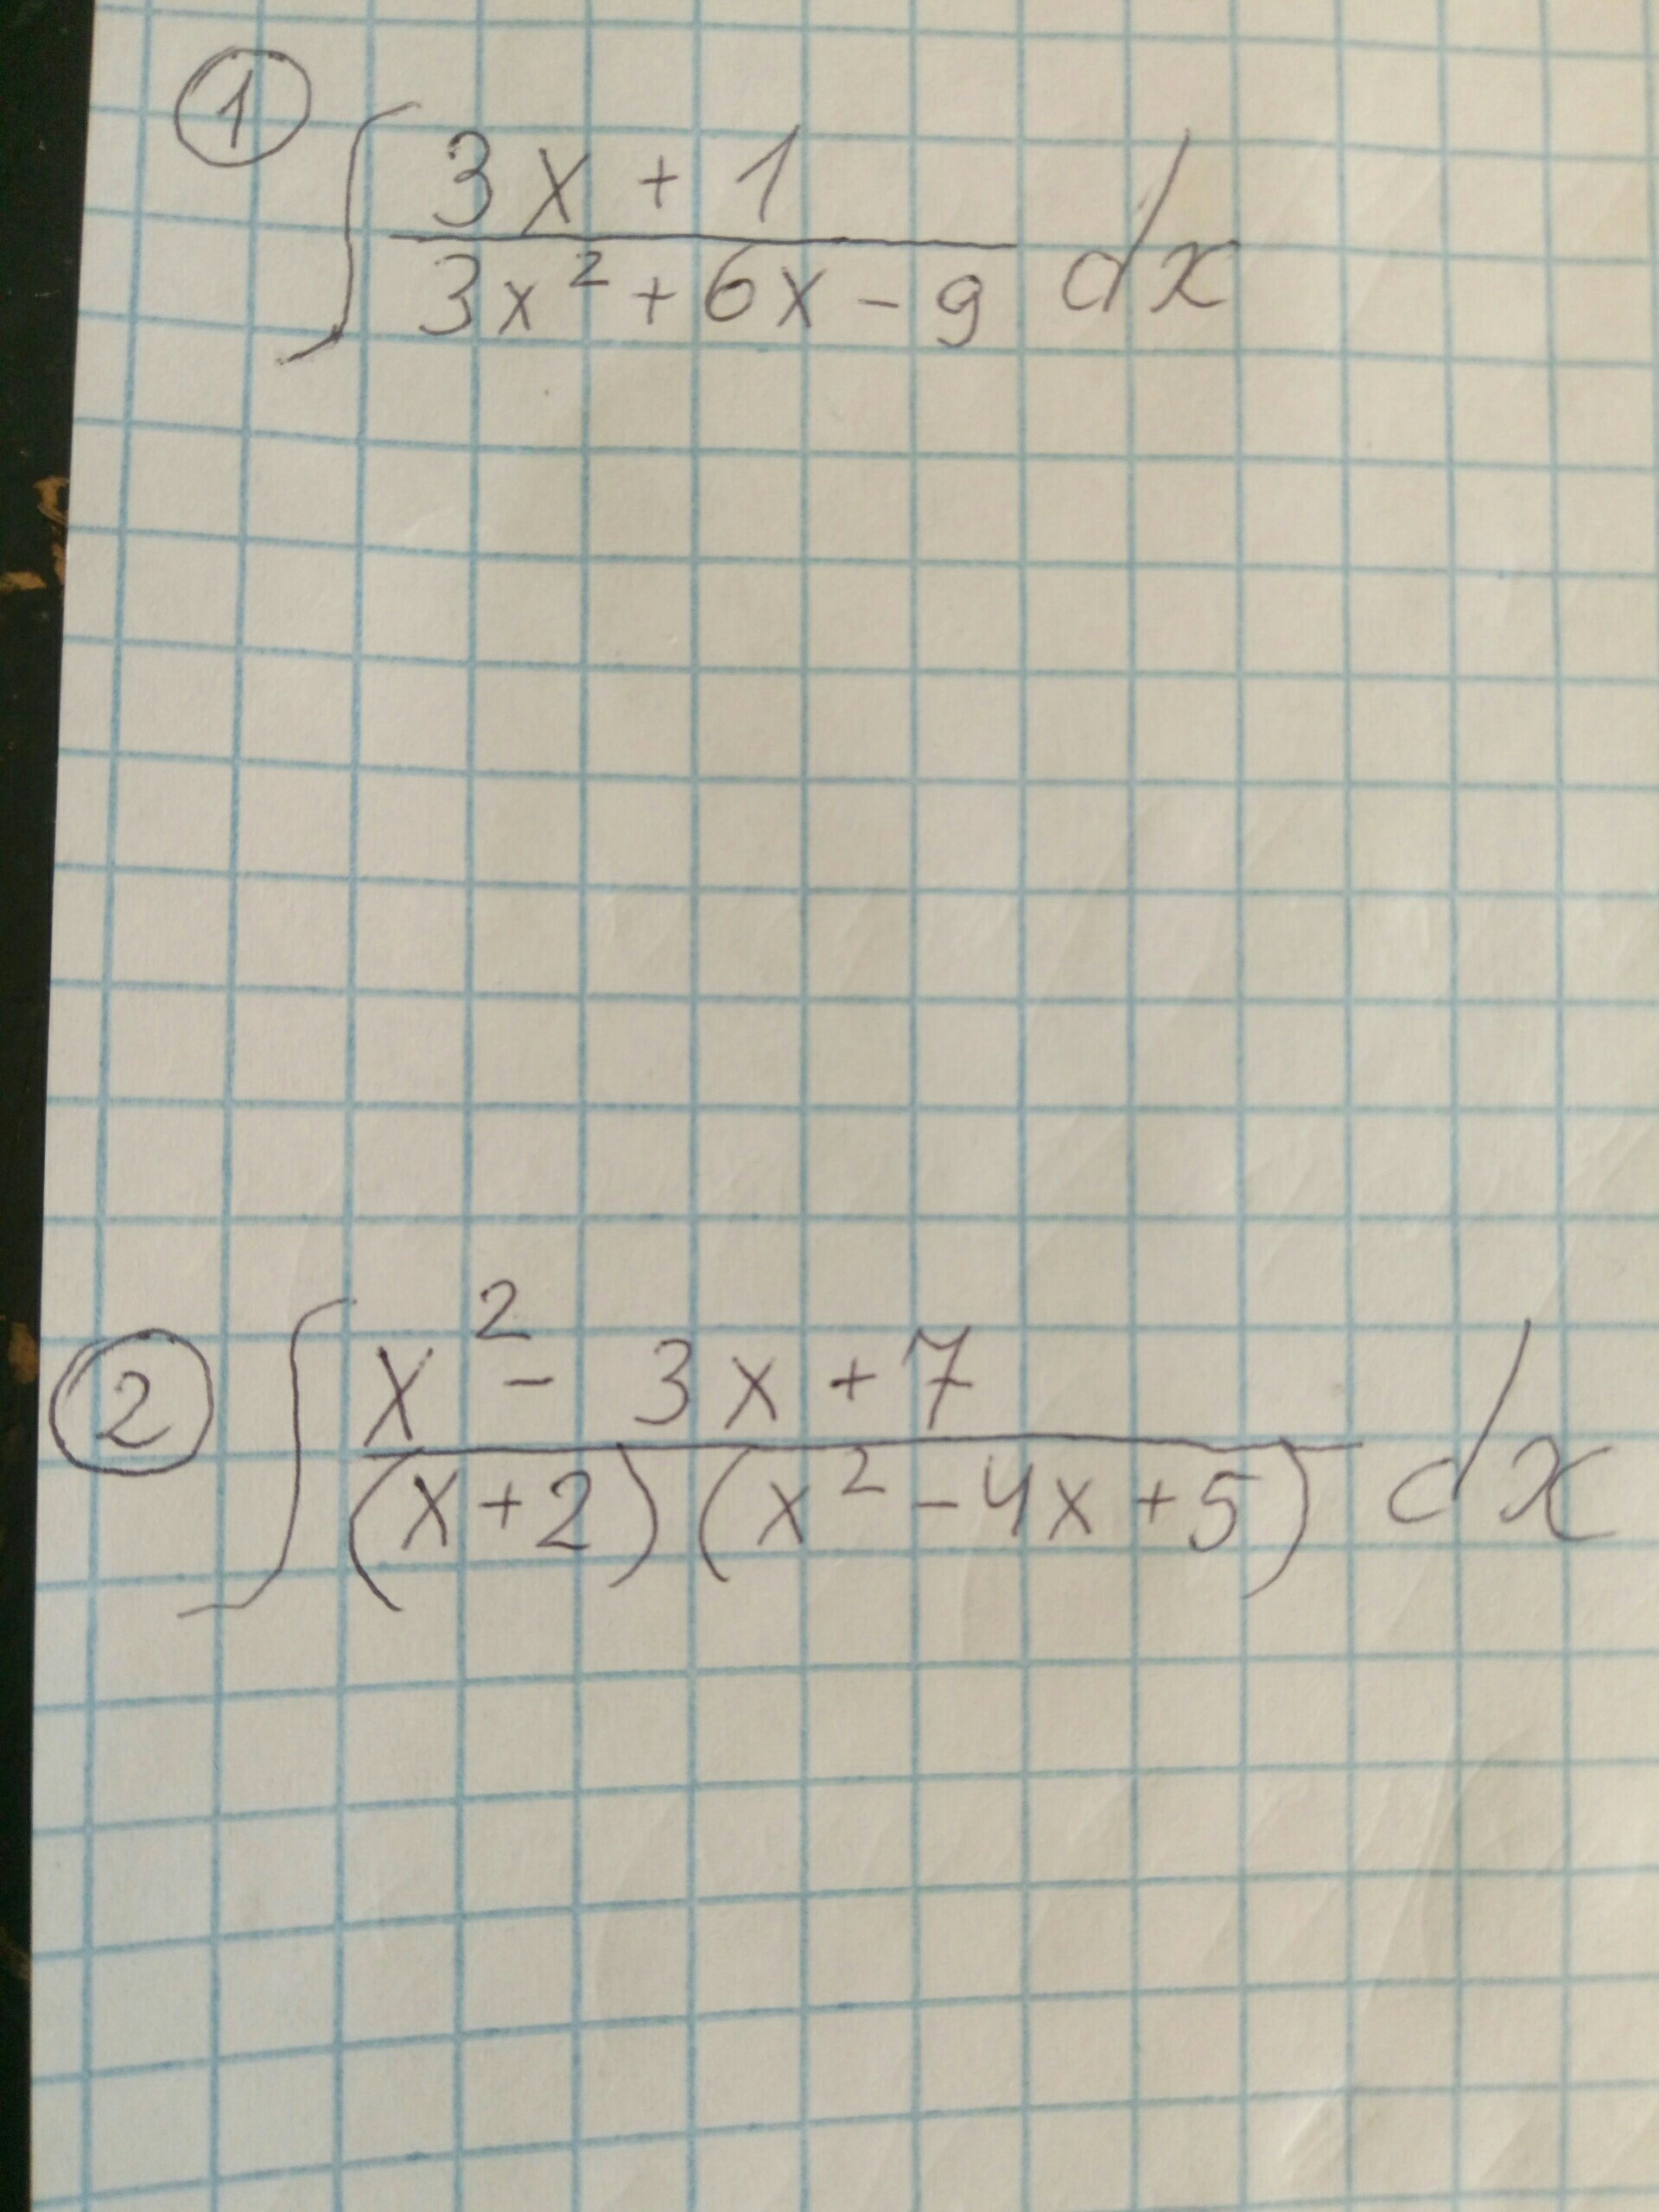 ① ∫ (3x + 1)/(3x² + 6x - 9) dx
② ∫ (x² - 3x + 7)/((x+2)(x² - 4x + 5)) dx